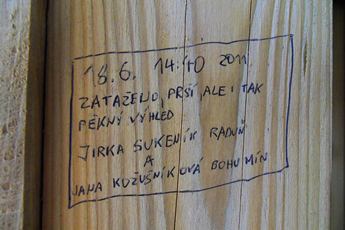 18.6. 14:10 2011
ZATAŽENO, PRŠÍ, ALE I TAK
PĚKNÝ VÝHLED
JIRKA SUKENÍK RADUŇ
A
JANA KUŽUŠNÍKOVÁ BOHUMÍN